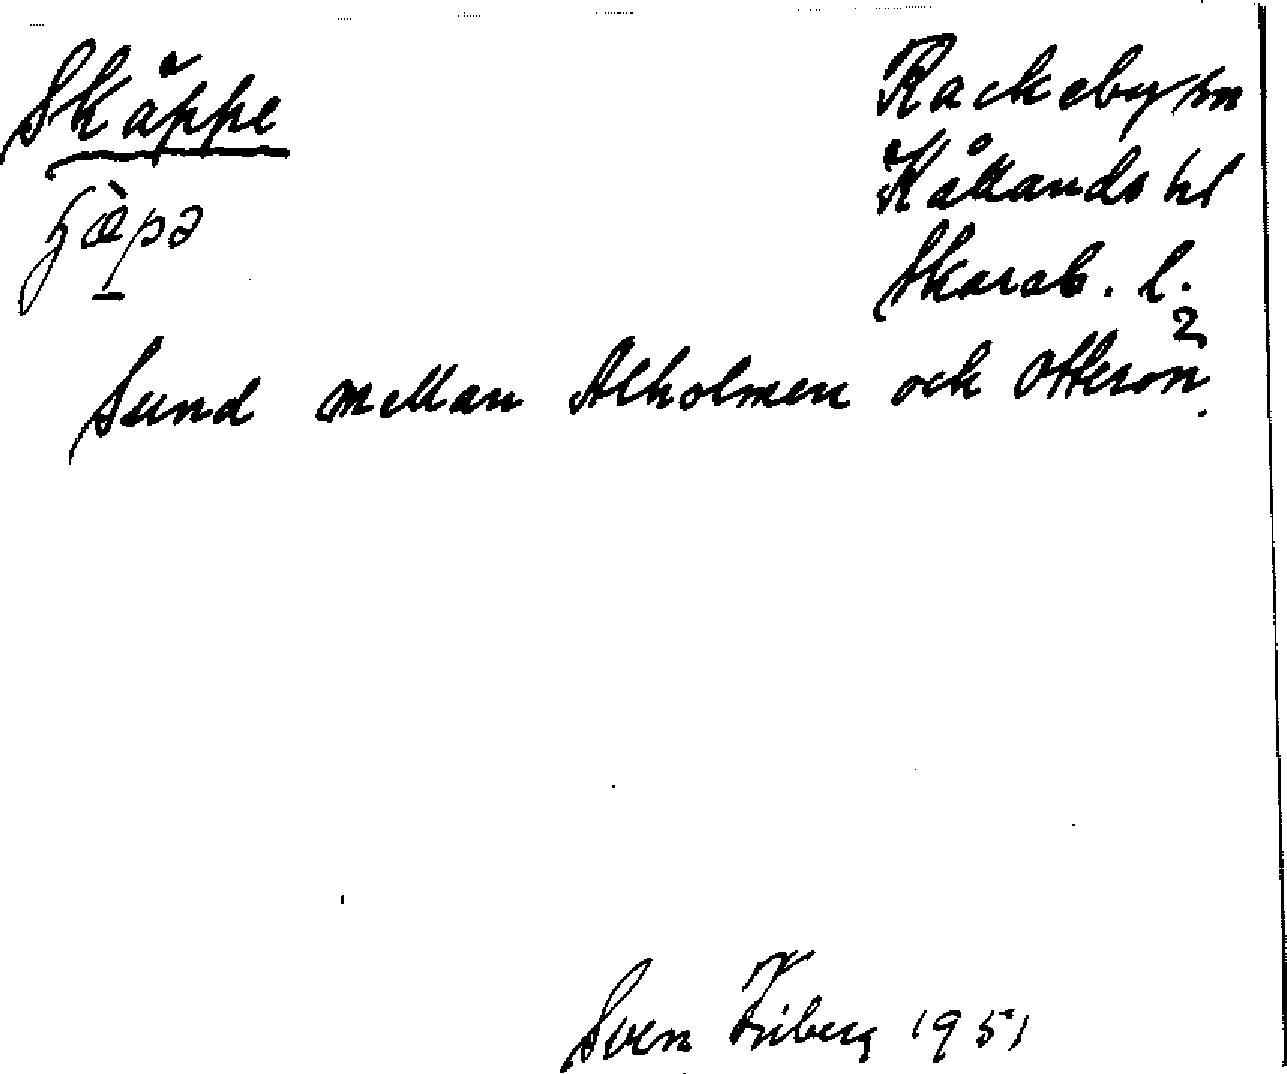 Skäppe
Rackeby sn
Kållands hd
Skarab. l.
2
Sund mellan Alholmen och Otterön.
Sven Friberg 1951